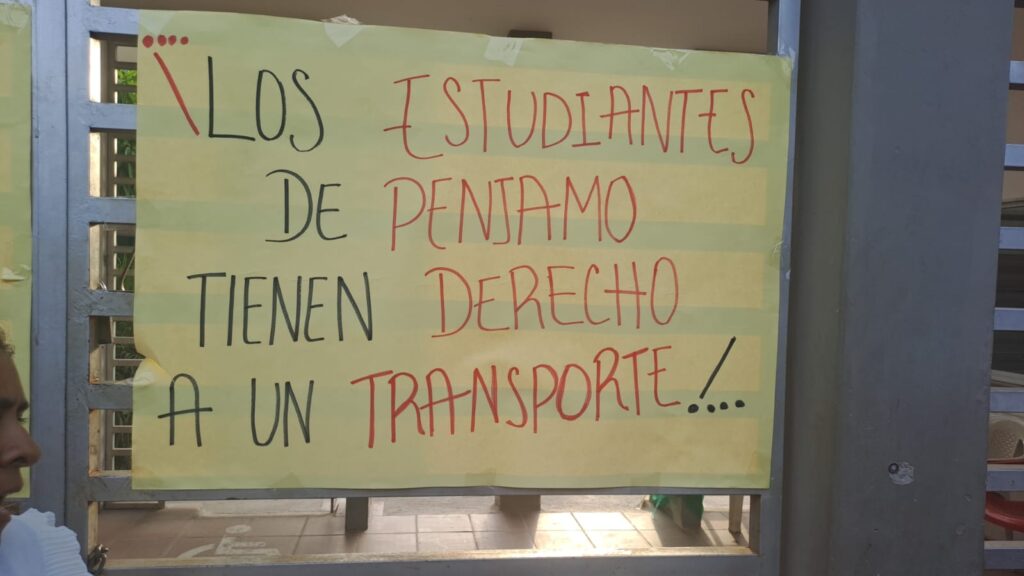 ¡LOS ESTUDIANTES
DE PENJAMO
TIENEN DERECHO
A UN TRANSPORTE!...